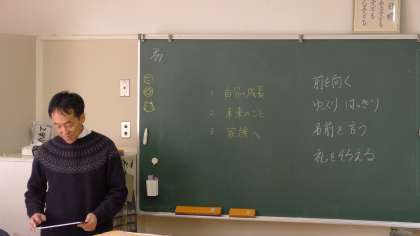 1 自分の成長
2 未来のこと
3 笑顔へ
前を向く
ゆっくり はっきり
名前を言う
礼をそろえる